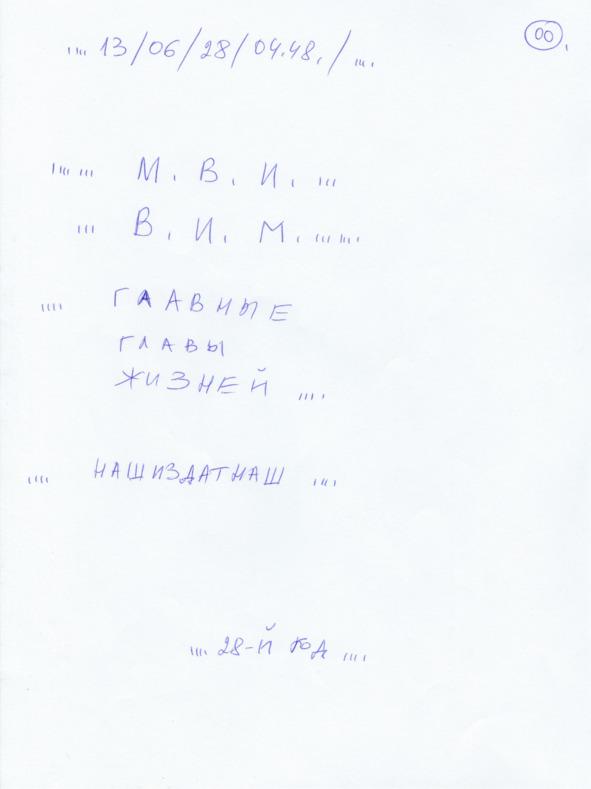 00.
,,,, 13/06/28/04.48./ ,,,.
,,,,,,, М. В. И. ,,,
,,, В. И. М. ,,,,,,,.
,,,, ГЛАВНЫЕ
ГЛАВЫ
ЖИЗНЕЙ ,,,.
,,,, НАШИЗДАТНАШ ,,,.
,,,, 28-Й ГОД ,,,.